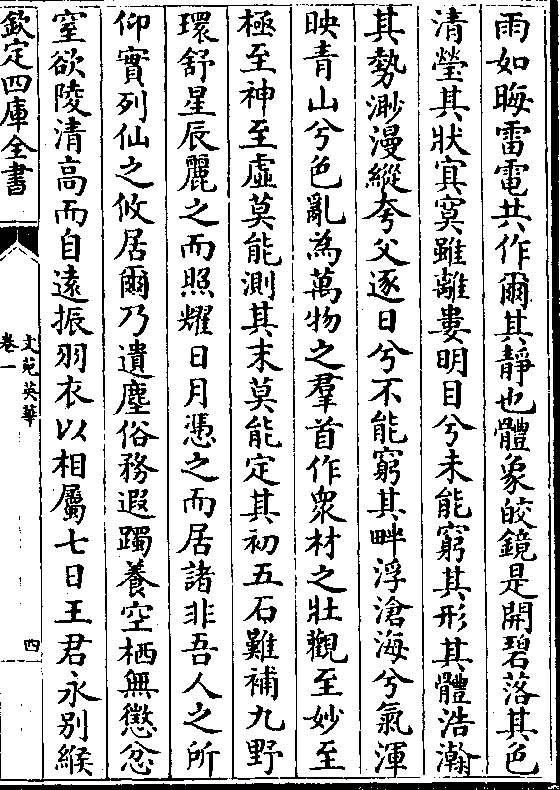 雨如晦雷電共作爾其靜也體象皎鏡是開碧落其色
清瑩其狀寘寞雖離婁明目兮未能窮其形其體浩瀚
其勢渺漫縱夸父逐日兮不能窮其畔浮滄海兮氣渾
映青山兮色亂為萬物之羣首作衆材之壯觀至妙至
極至神至虛莫能測其末莫能定其初五石難補九野
環舒星辰麗之而照耀日月憑之而居諸非吾人之所
仰實列仙之攸居爾乃遺塵俗務遐躅養空栖無懲忿
窒欲陵清高而自遠振羽衣以相屬七日王君永别緱
欽定四庫全書
文苑英華
卷一
四